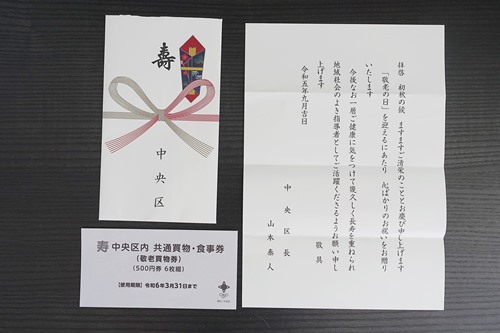 寿
中央区
寿 中央区内 共通買物・食事券
(敬老買物券)
(500円券 6枚組)
【使用期限】 令和6年3月31日まで
拝啓 初秋の候 ますますご清栄のこととお慶び申し上げます
「敬老の日」を迎えるにあたり 心ばかりのお祝いをお贈り
いたします
今後なお一層ご健康に気をつけて幾久しく長寿を重ねられ
地域社会のよき指導者としてご活躍くださるようお願い申し
上げます
敬具
令和五年九月吉日
中央区長
山本泰人